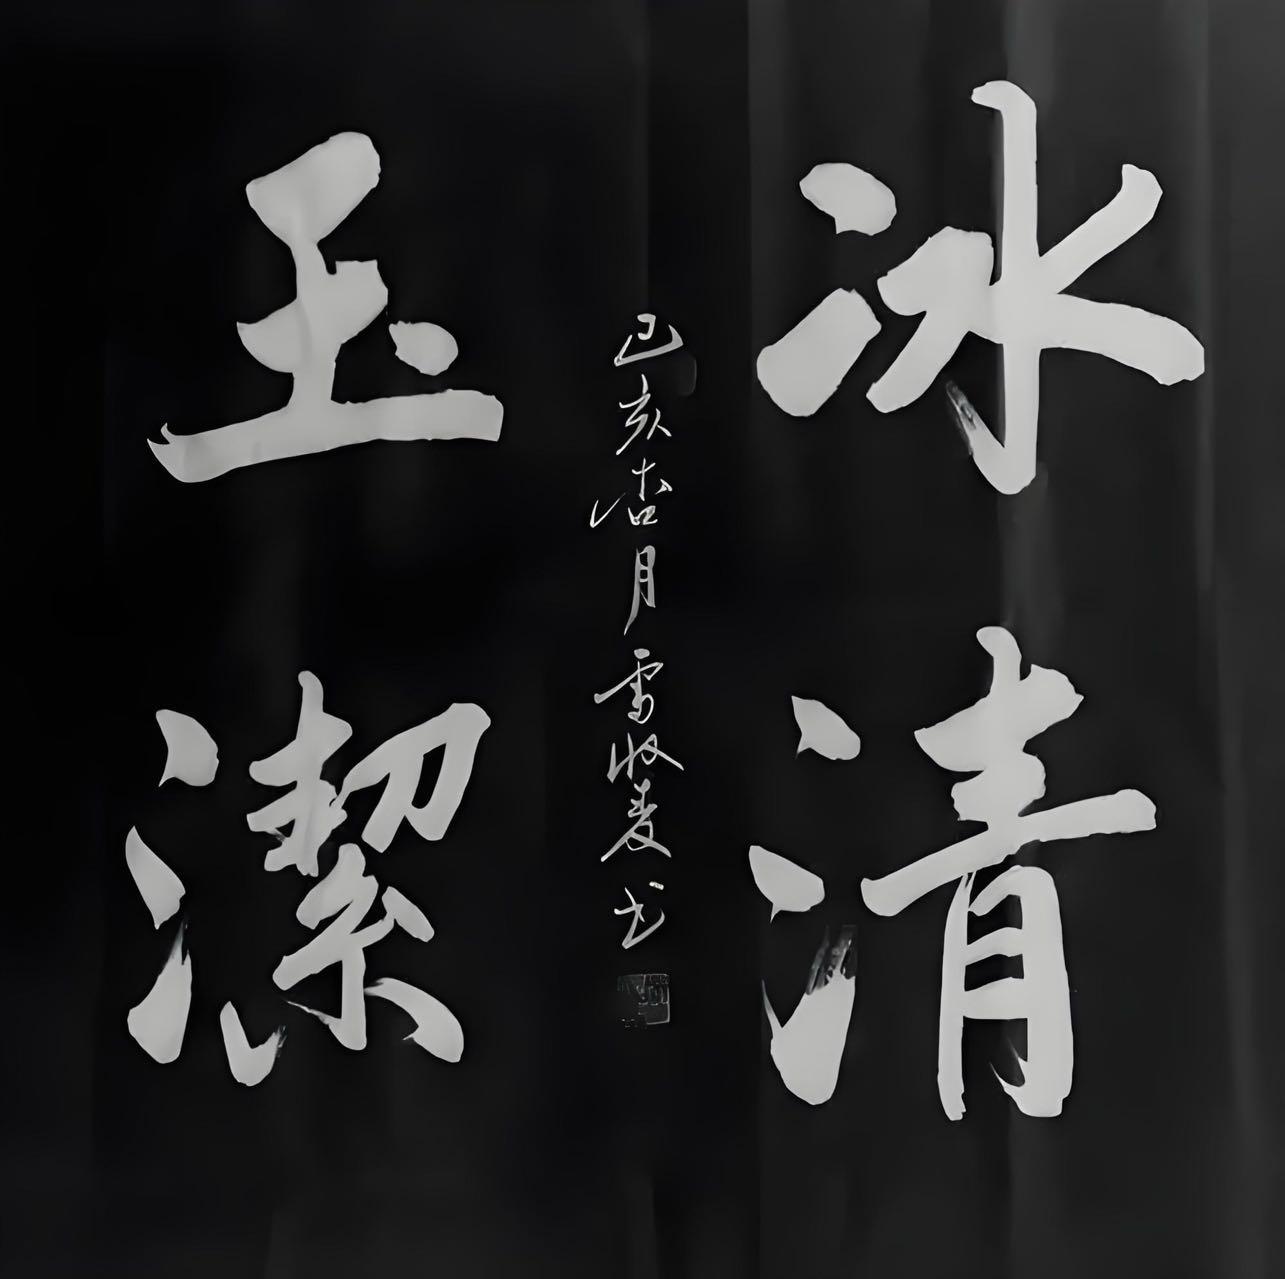 冰清
玉潔
己亥杏月收麦书